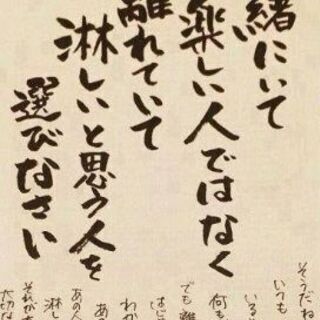 緒にいて
楽しい人ではなく
離れていて
淋しいと思う人を
選びなさい
そうだね
いつも
いる
何も
でも
はじ
わか
あの
あの人
淋し
それが
大切な